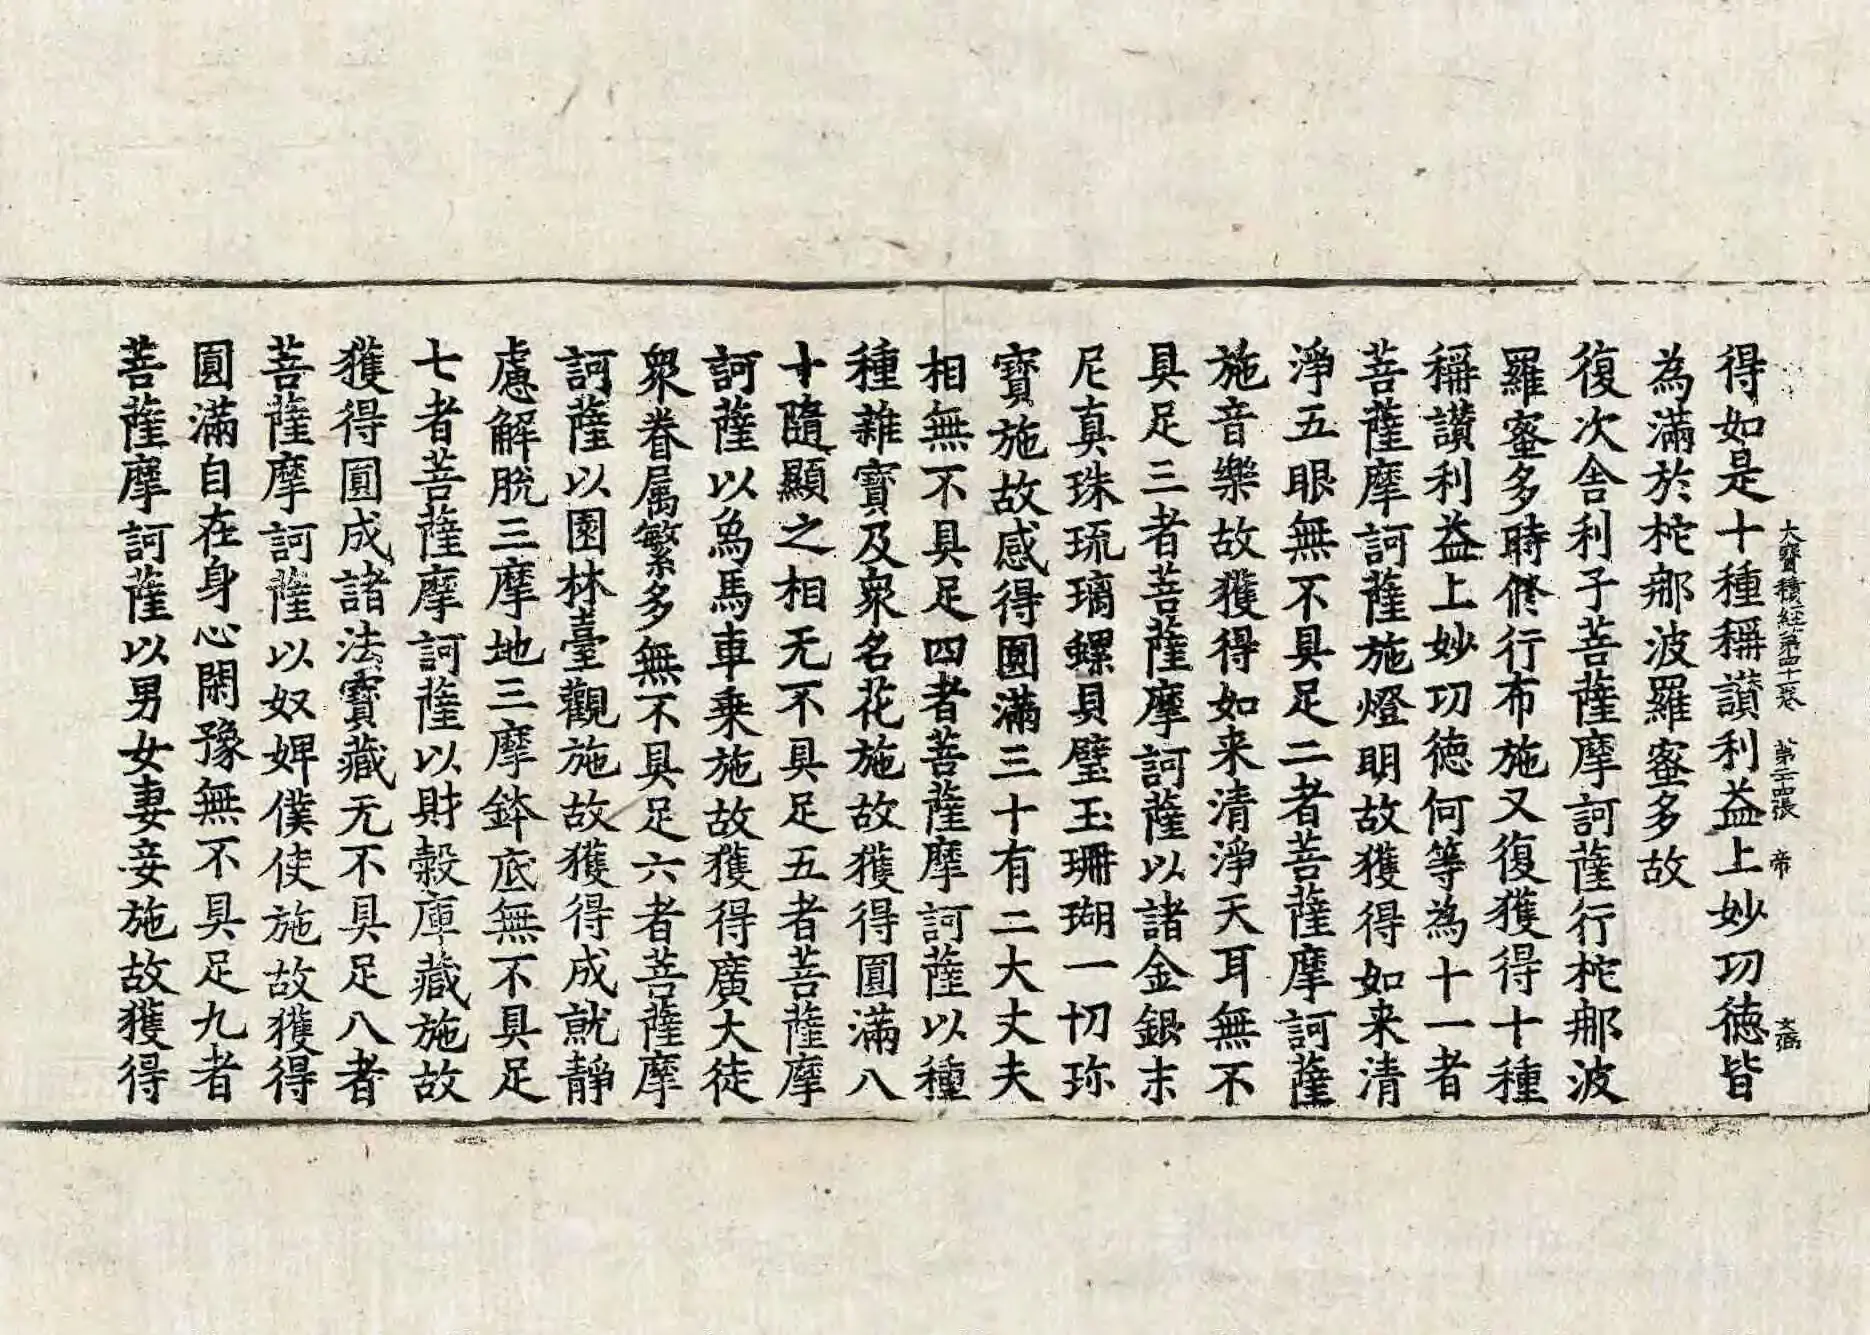 得如是十種稱讃利益上妙功德皆
大寶積經第四十一卷 第二十四張 帝
為滿於柁那波羅蜜多故
復次舎利子菩薩摩訶薩行柁那波
羅蜜多時修行布施又復獲得十種
稱讃利益上妙功德何等為十一者
菩薩摩訶薩施燈明故獲得如来清
淨五眼無不具足二者菩薩摩訶薩
施音樂故獲得如来清淨天耳無不
具足三者菩薩摩訶薩以諸金銀末
尼真珠琉璃螺貝璧玉珊瑚一切珎
寶施故感得圓滿三十有二大丈夫
相無不具足四者菩薩摩訶薩以種
種雜寶及衆名花施故獲得圓滿八
十隨顯之相无不具足五者菩薩摩
訶薩以為馬車乗施故獲得廣大徒
衆眷属繁多無不具足六者菩薩摩
訶薩以園林臺觀施故獲得成就靜
慮解脫三摩地三摩鉢底無不具足
七者菩薩摩訶薩以財穀庫藏施故
獲得圓成諸法寶藏无不具足八者
菩薩摩訶薩以奴婢僕使施故獲得
圓滿自在身心閑豫無不具足九者
菩薩摩訶薩以男女妻妾施故獲得